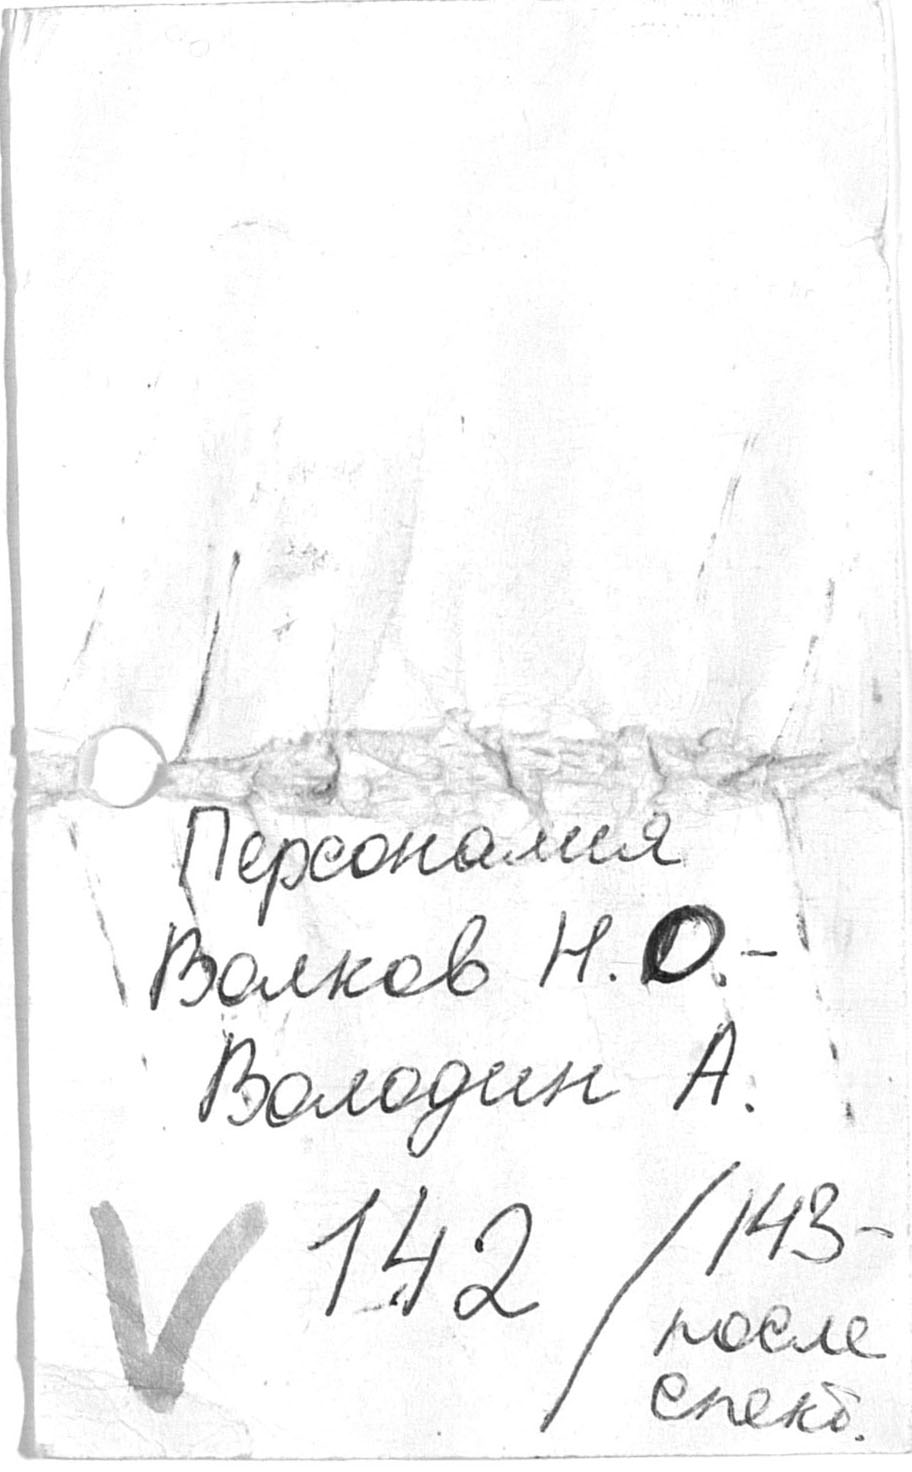 Персоналия
Волков Н. О.-
Володин А.
V 142 / 143-
после
спект.